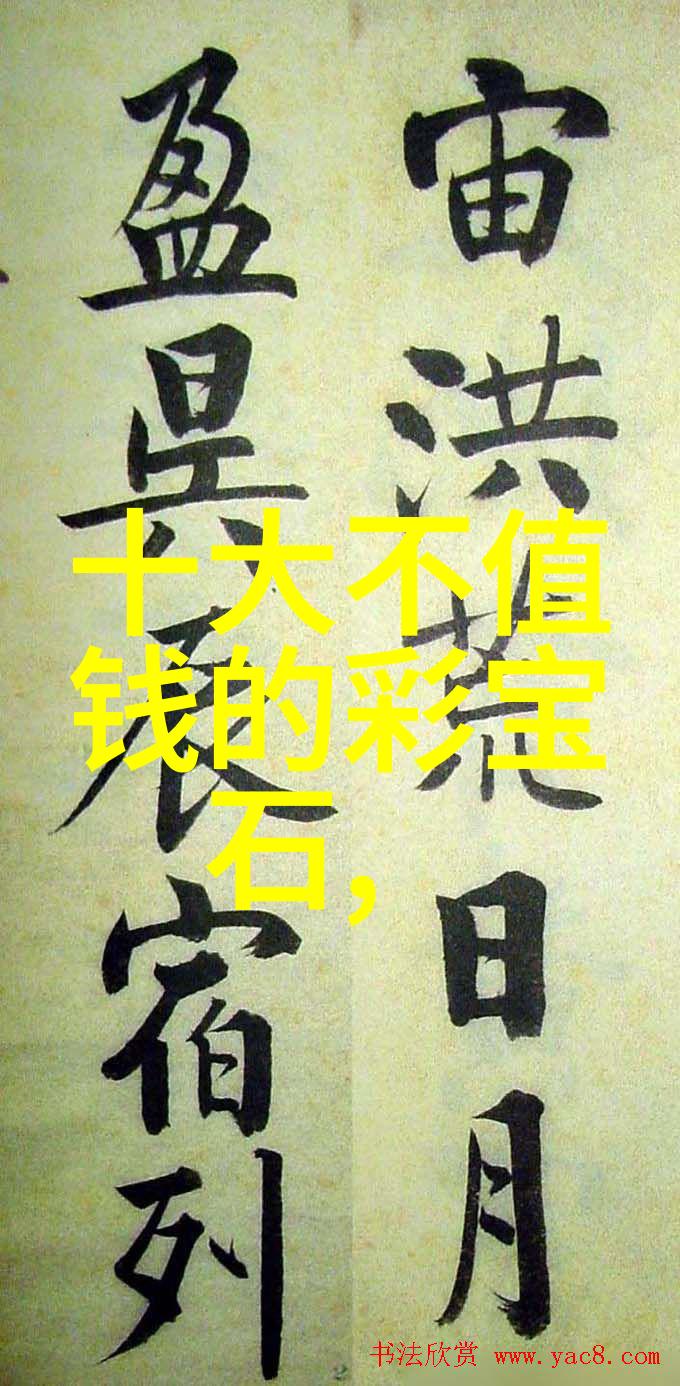 宙洪荒日月
盈昃辰宿列
十大不值
钱的彩宝
石,
书法欣赏 www.yac8.com